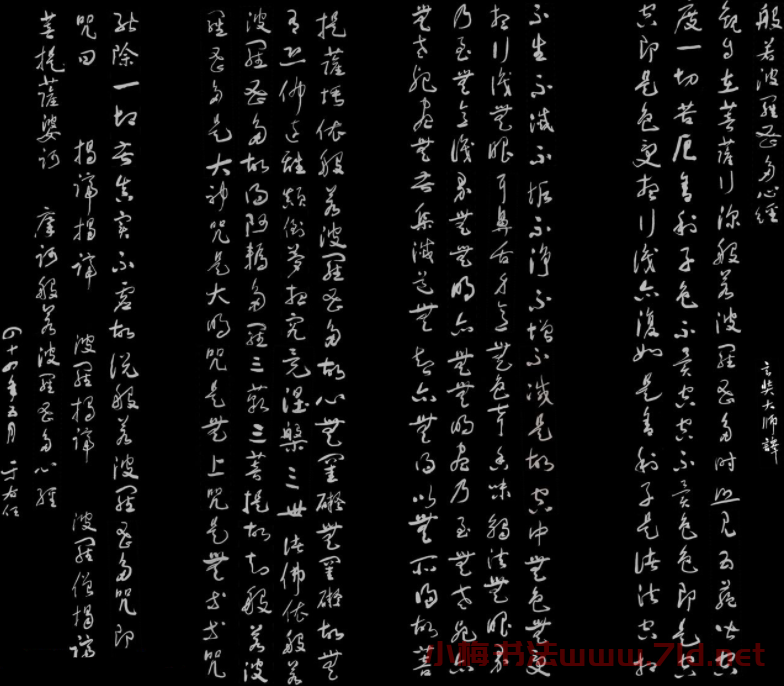 般若波羅蜜多心經
玄奘大師譯
觀自在菩薩行深般若波羅蜜多時照見五蘊皆空
度一切苦厄舍利子色不異空空不異色色即是空
空即是色受想行識亦復如是舍利子是諸法空相
不生不滅不垢不淨不增不減是故空中無色無受
想行識無眼耳鼻舌身意無色聲香味觸法無眼界
乃至無意識界無無明亦無無明盡乃至無老死亦
無老死盡無苦集滅道無智亦無得以無所得故菩
提薩埵依般若波羅蜜多故心無罣礙無罣礙故無
有恐怖遠離顛倒夢想究竟涅槃三世諸佛依般若
波羅蜜多故得阿耨多羅三藐三菩提故知般若波
羅蜜多是大神咒是大明咒是無上咒是無等等咒
能除一切苦真實不虛故說般若波羅蜜多咒即
咒曰 揭諦揭諦 波羅揭諦 波羅僧揭諦
菩提薩婆訶 摩訶般若波羅蜜多心經
四十四年五月 于右任
小梅书法www.7ld.net